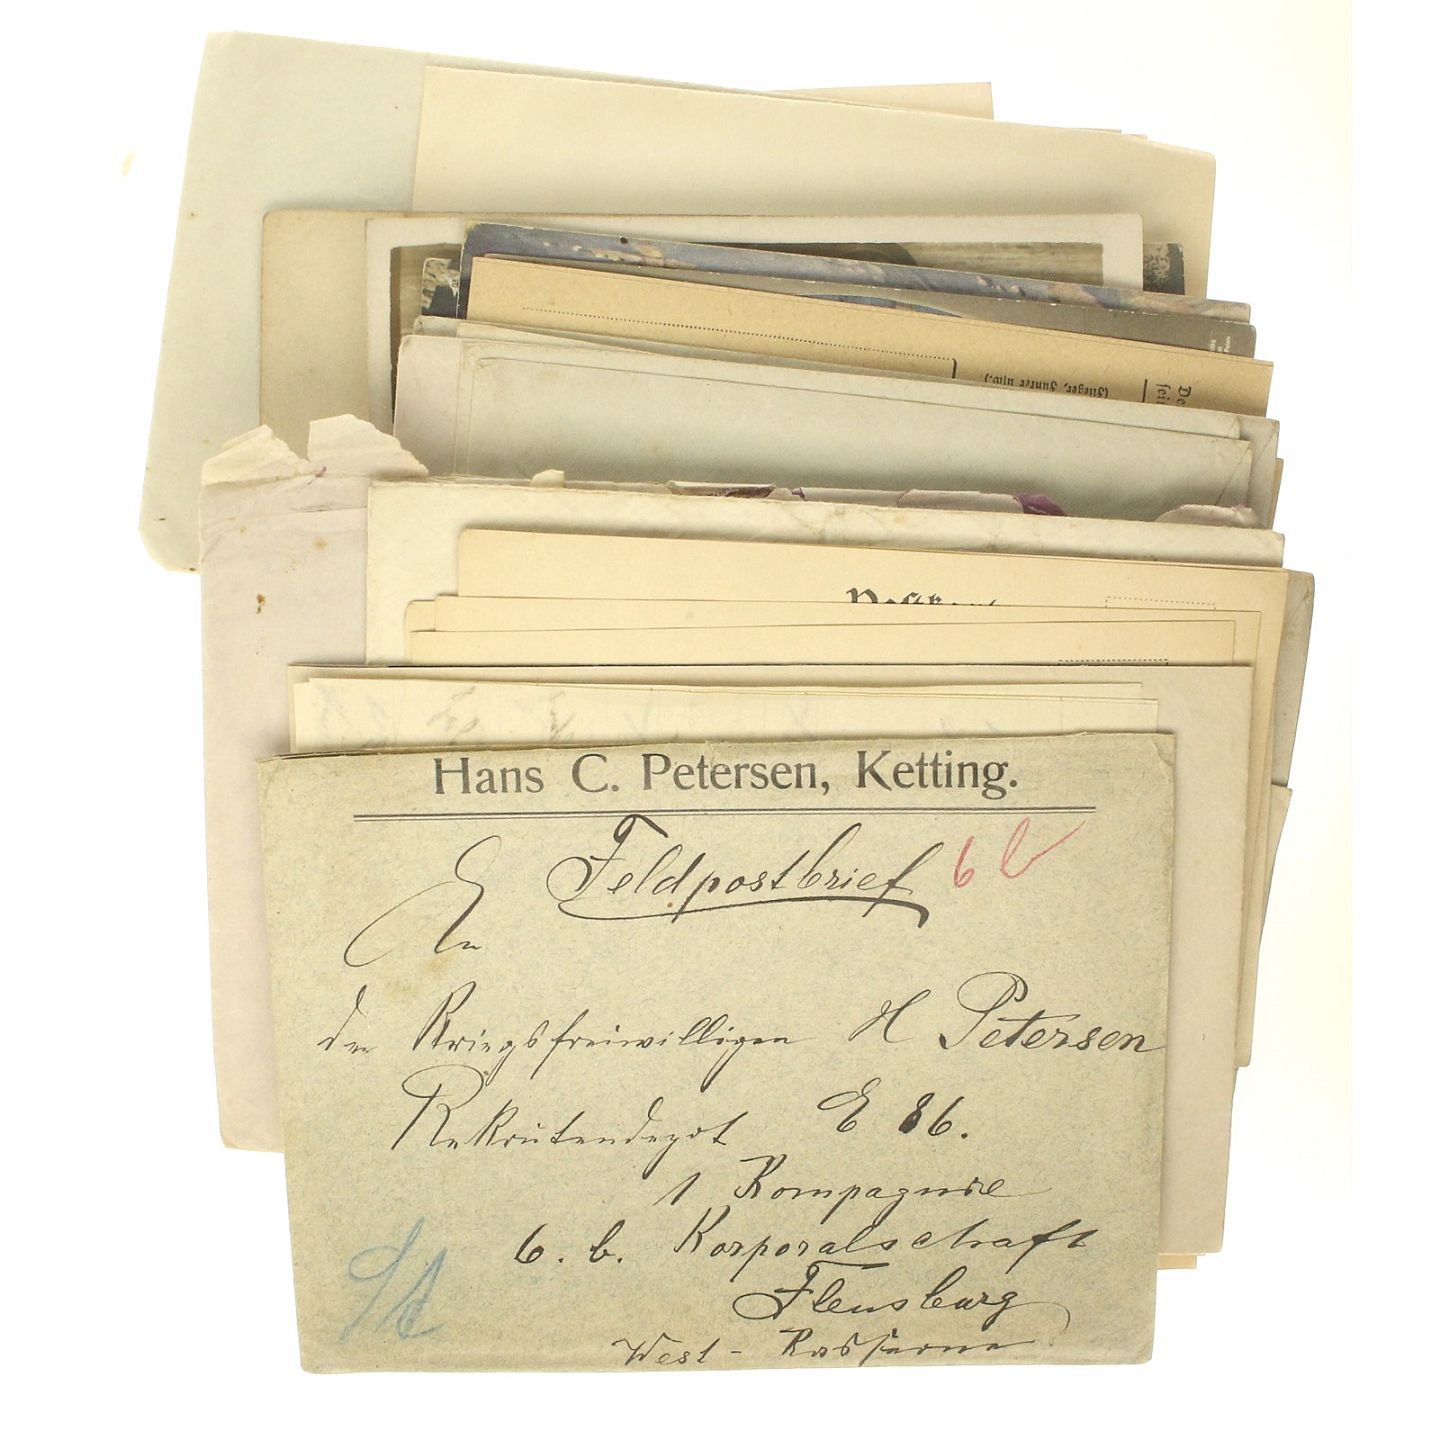 (Flieger, Funker usw.)
Hans C. Petersen, Ketting.
Feldpostbrief 6 b
An
den Kriegsfreiwilligen H Petersen
Rekrutendepot E 86.
1 Kompagnie
6. b. Korporalschaft
Flensburg
West - Kasserne